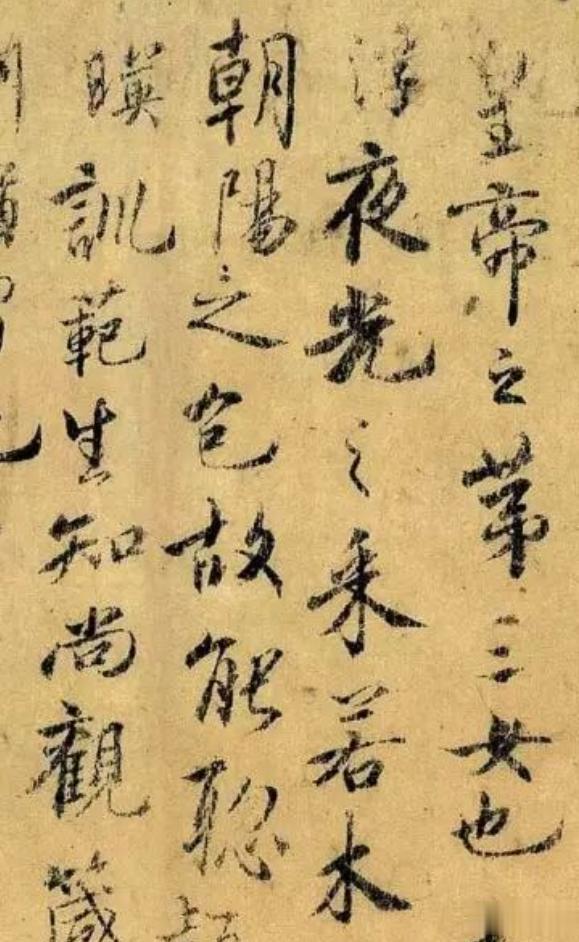 皇帝之苐三女也
浮夜光之采若木
朝陽之色故能聡
暎訓範生知尚觀箴